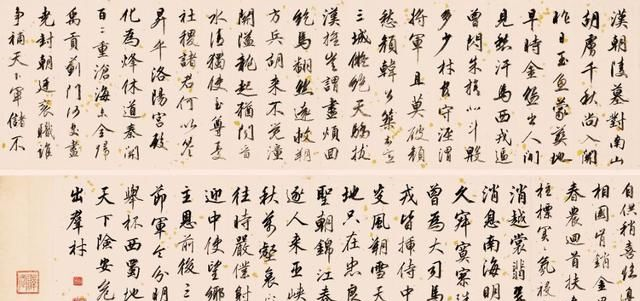 漢朝陵墓對南山
胡虜千秋尚入關
昨日玉魚蒙葬地
早時金盌出人間
見愁汗馬西戎逼
曾閃朱旗北斗殷
多少材官守涇渭
將軍且莫破
愁顏韓公本意築
三城擬絕天驕拔
漢旌豈謂盡煩回
紇馬翻然遠救朔
方兵胡來不覺潼
關隘龍起猶聞晉
水清獨使至尊憂
社稷諸君何以答
昇平洛陽宮殿
化為烽休道秦關
百二重滄海未全歸
禹貢薊門何處盡
堯封朝廷袞職誰
爭補天下軍儲不
自供稍喜臨
相國肯銷金
春農迴首扶
柱標冥氛祲
消越裳翡
消息南海明
久寂寥殊
曾為大司馬
戎皆插侍中
炎風朔雪天
地只在忠良
聖朝錦江春
逐人來巫峽
秋萬壑哀
往時嚴僕射
迎中使望鄉
主恩前後三
節軍令分明
舉杯西蜀地
天下險安危
出群材